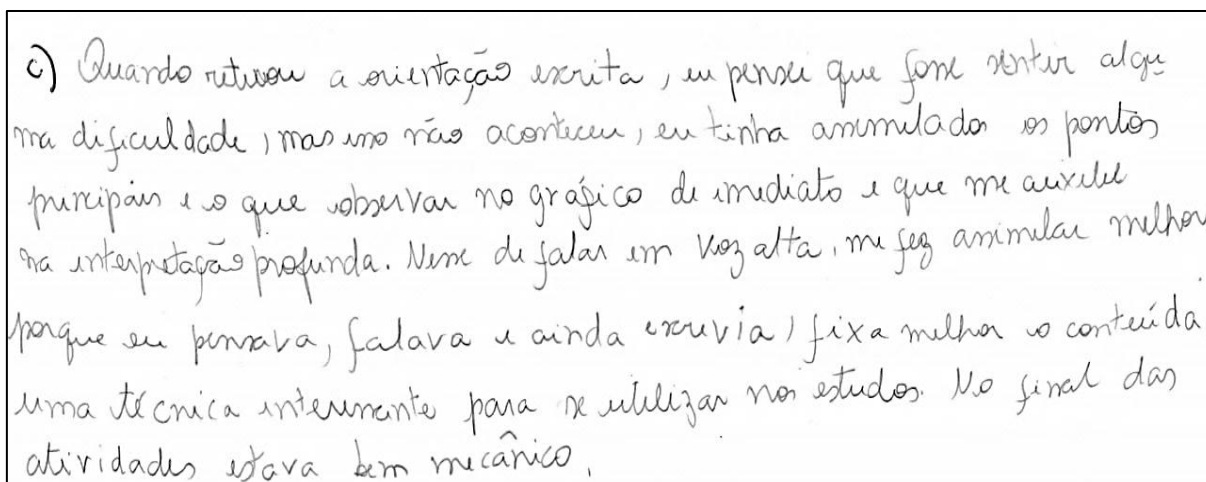 c) Quando retirou a orientação escrita, eu pensei que fosse sentir algu
ma dificuldade, mas isso não aconteceu, eu tinha assimilado os pontos
principais e o que observar no gráfico de imediato e que me auxilie
na interpretação profunda. Nesse de falar em voz alta, me fez assimilar melhor
porque eu pensava, falava e ainda escrevia, fixa melhor o conteúda
uma técnica interessante para se utilizar nos estudos. No final das
atividades estava bem mecânico.